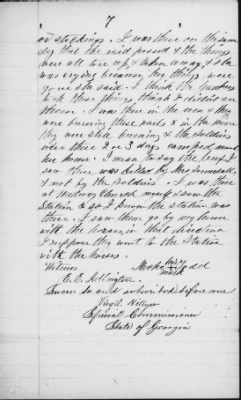 7
or stockings. I was there on the same
day that the raid passed & the things
were all tore up & taken away & she
was crying because her things were
gone she said. I think the Yankees
took those things though I did not see
them. I was there in the even & they
were burning those rails & in the morn
they were still burning & the Soldiers
were there 2 or 3 days camped must
her house. I mean to say the beef I
saw there was killed by Mrs
& not by the Soldiers. I was there
at
Station, & so I know the station was
there. I saw them go by my house
with the horses in that direction
I suppose they went to the Station
with the horses.
Witness his
Moke X Todd
mark
C. E. Arlington
Sworn to and subscribed before me
Virgil Hillyer
Special Commissioner
State of Georgia